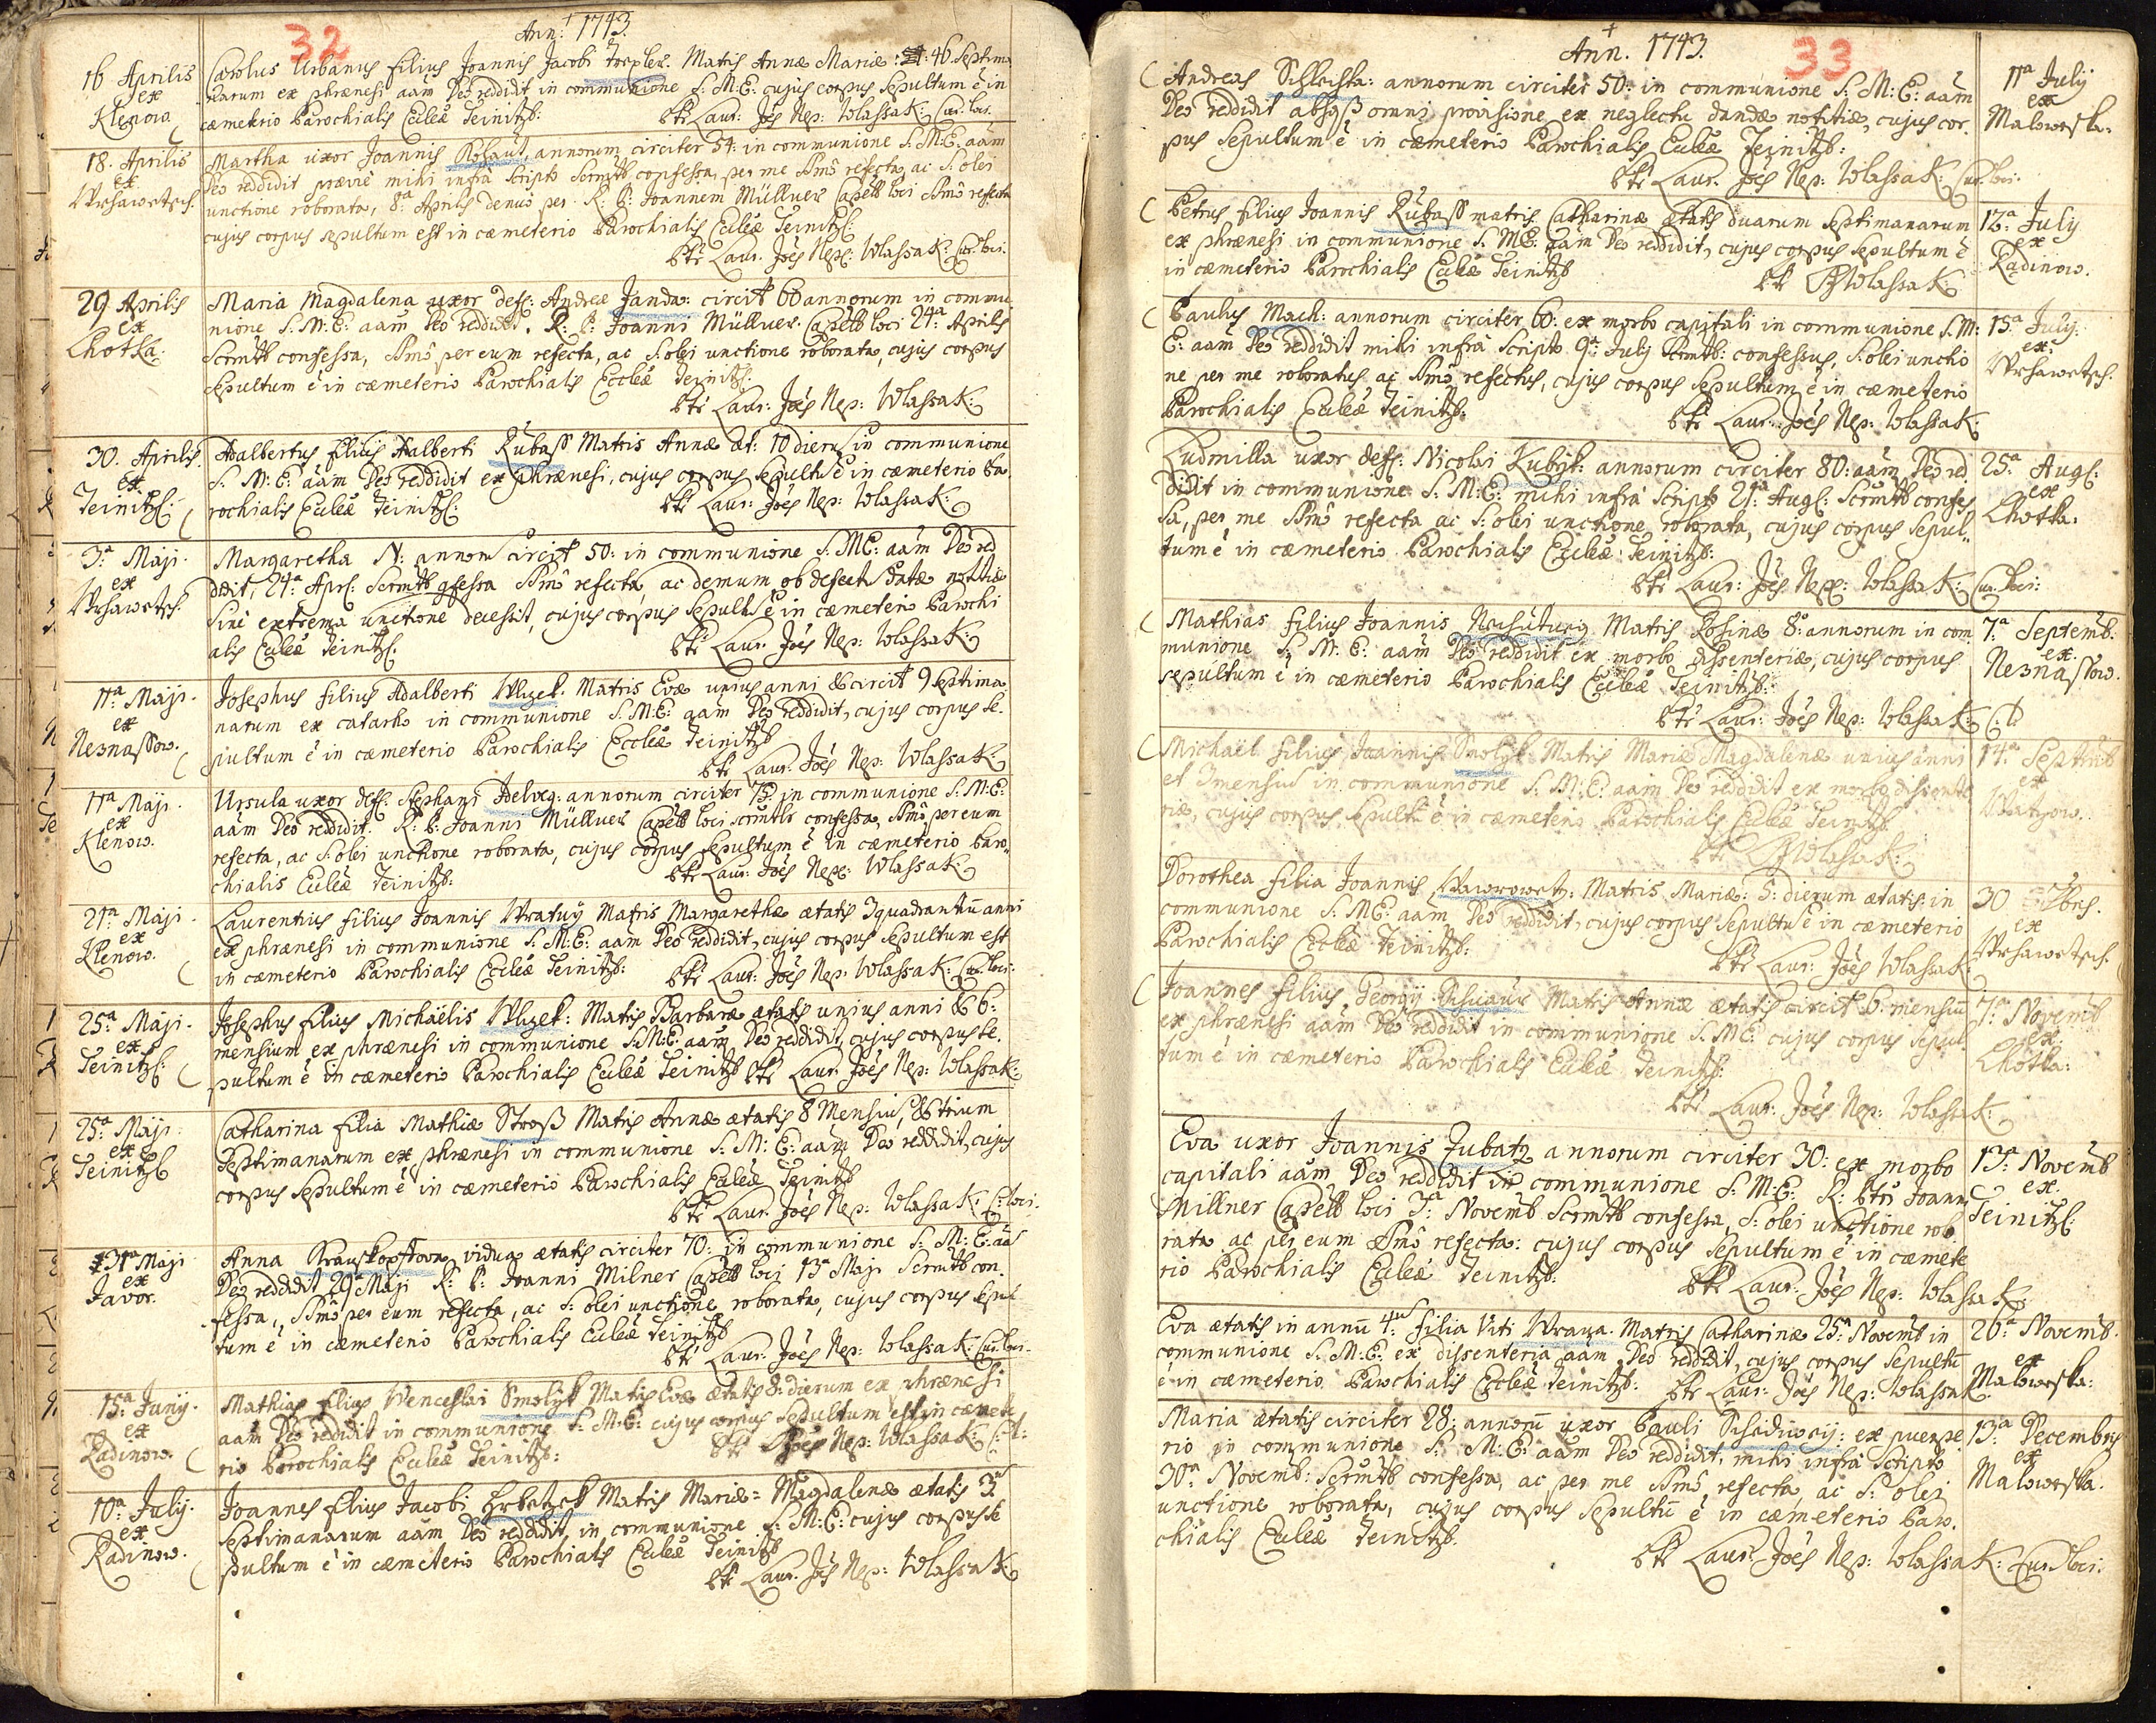 32
Ann: 1743.
16 Aprilis
ex
Klenow.
Carolus Urbanus filius Joannis Jacobi Toepler. Matris Annæ Mariæ: 46 Septima
narum ex phrænesi aãm Deo reddidit in communione S: M: E: cujus corpus sepultum ẽ in
cæmeterio Parochialis Eccleæ Teinitzs:
Ptr Laur: Jões Nep: Wlassak: Cur: loci.
18. Aprilis
ex
Wrhawetsch.
Martha uxor Joannis Kohaut, annorum circiter 54: in communione S: M: E: aãm
Deo reddidit præviè mihi infrà scripto Scrmtb confessa, per me SSmô refecta, ac S: olei
unctione roborata, 8ª Aprilis denuò per R: P: Joannem Müllner Capell loci SSmô refecta
cujus corpus sepultum est in cæmeterio Parochialis Eccleæ Teinitzs:
Ptr Laur. Jões Nep: Wlassak: Cur: loci.
29 Aprilis
ex
Lhotka.
Maria Magdalena uxor def: Andreæ Janda: circit 60 annorum in commu
nione S: M: E: aãm Deo reddidit. R: P: Joanni Müllner Capell loci 24ª Aprilis
Scrmtb confessa, SSmô per eum refecta, ac S: olei unctione roborata, cujus corpus
sepultum ẽ in cæmeterio Parochialis Eccleæ Teinitzs:
Ptr Laur: Jões Nep: Wlassak:
30. Aprilis.
ex
Teinitzs:
Adalbertus filius Adalberti Kubass Matris Annæ æt: 10 dierũ in communione
S: M: E: aãm Deo reddidit ex phrænesi, cujus corpus sepultũ ẽ in cæmeterio Pa
rochialis Eccleæ Teinitzs:
Ptr Laur: Jões Nep: Wlassak:
3ª Maji.
ex
Wrhawetsch.
Margaretha N: annorũ circit 50: in communione S: M: E: aãm Deo red
didit, 24ª Apr: Scrmtb cfessa SSmô refecta, ac demum ob defectũ datæ notitiæ
sine extrema unctione decessit, cujus corpus sepultũ ẽ in cæmeterio Parochi
alis Eccleæ Teinitzs:
Ptr Laur. Jões Nep: Wlassak:
11ª Maji.
ex
Neznassow.
Josephus filius Adalberti Wlzek. Matris Evæ unius anni & circit 9 septima
narum ex catarho in communione S: M: E: aãm Deo reddidit, cujus corpus se
pultum ẽ in cæmeterio Parochialis Eccleæ Teinitzs
Ptr Laur: Jões Nep: Wlassak
11ª Maji.
ex
Klenow.
Ursula uxor def: Stephani Adelvog: annorum circiter 75 in communione S: M: E:
aãm Deo reddidit. R: P: Joanni Müllner Capell loci scrmtb confessa, SSmô per eum
refecta, ac S: olei unctione roborata, cujus corpus sepultum ẽ in cæmeterio Paro
chialis Eccleæ Teinitzs:
Ptr Laur: Jões Nep: Wlassak:
21ª Maji.
ex
Klenow.
Laurentius filius Joannis Wratny Matris Margarethæ ætatis 3 quadrantũ anni
ex phrænesi in communione S: M: E: aãm Deo reddidit, cujus corpus sepultum est
in cæmeterio Parochialis Eccleæ Teinitzs:
Ptr Laur: Jões Nep: Wlassak: Cur: loci:
25ª Maji.
ex
Teinitzs:
Josephus filius Michäelis Wlzek: Matris Barbaræ ætatis unius anni & 6:
mensium ex phrænesi in communione S: M: E: aãm Deo reddidit, cujus corpus se
pultum ẽ in cæmeterio Parochialis Eccleæ Teinitzs Ptr Laur. Jões Nep: Wlassak:
25ª Maji
ex
Teinitzs
Catharina filia Mathiæ Stross Matris Annæ ætatis 8 Mensiũ, & trium
septimanarum ex phrænesi in communione S: M: E: aãm Deo reddidit, cujus
corpus sepultum ẽ in cæmeterio Parochialis Eccleæ Teinitzs
Ptr Laur. Jões Nep: Wlassak: C: loci.
31ª Maji
ex
Javor.
Anna Krauskopffowa vidua ætatis circiter 70: in communione S: M: E: aãm
Deo reddidit 29ª Maji R: P: Joanni Milner Capell loci 13ª Maji Scrmtb con
fessa, SSmô per eum refecta, ac S: olei unctione roborata, cujus corpus sepul
tum ẽ in cæmeterio Parochialis Eccleæ Teinitzs
Ptr Laur: Jões Nep: Wlassak: Cur: loci.
15ª Junij.
ex
Radinow.
Mathias filius Wenceslai Smolik Matris Evæ ætatis 8: dierum ex phrænesi
aãm Deo reddidit in communione S: M: E: cujus corpus sepultum est in cæmete
rio Parochialis Eccleæ Teinitzs:
Ptr Jões Nep: Wlassak: C: l:
10ª Julij.
ex
Radinow.
Joannes filius Jacobi Hrbatzek Matris Mariæ Magdalenæ ætatis 3ũ
septimanarum aãm Deo reddidit in communione S: M: E: cujus corpus se
pultum ẽ in cæmeterio Parochialis Eccleæ Teinitzs
Ptr Laur. Jões Nep: Wlassak
33
Ann. 1743.
Andreas Schleiska: annorum circiter 50: in communione S: M: E: aãm
Deo reddidit absqß omni provisione ex neglectu dandæ notitiæ, cujus cor
pus sepultum ẽ in cæmeterio Parochialis Eccleæ Teinitzs:
Ptr Laur. Jões Nep: Wlassak: Cur: loci.
11ª Julij
ex
Maloweska.
Petrus filius Joannis Kubass matris Catharinæ ætatis duarum septimanarum
ex phrænesi in communione S: M: E: aãm Deo reddidit, cujus corpus sepultum ẽ
in cæmeterio Parochialis Eccleæ Teinitzs
Ptr Wlassak
12ª July
ex
Radinow.
Paulus Mach: annorum circiter 60: ex morbo capitali in communione S: M:
E: aãm Deo reddidit mihi infrà scripto 9ª July Scrmtb: confessus, S: olei unctio
ne per me roboratus ac SSmô refectus, cujus corpus sepultum ẽ in cæmeterio
Parochialis Eccleæ Teinitzs:
Ptr Laur: Jões Nep: Wlassak:
15ª July.
ex
Wrhawetsch.
Ludmilla uxor def: Nicolai Kubik: annorum circiter 80: aãm Deo red
didit in communione S: M: E: mihi infrà scripto 21ª Aug: Scrmtb confes
sa, per me SSmô refecta ac S: olei unctione roborata, cujus corpus sepul
tum ẽ in cæmeterio Parochialis Eccleæ Teinitzs:
Ptr Laur: Jões Nep: Wlassak: Cur: loci:
25ª Aug:
ex
Lhotka.
Mathias filius Joannis Matris Rosinæ 8º annorum in com
munione S: M: E: aãm Deo reddidit ex morbo dissenteriæ, cujus corpus
sepultum ẽ in cæmeterio Parochialis Eccleæ Teinitzs:
Ptr Laur: Jões Nep: Wlassak: C: l:
7ª Septemb.
ex
Neznassow.
Michaël filius Joannis Smolik Matris Mariæ Magdalenæ unius anni
et 3 mensiũ in communione S: M: E: aãm Deo reddidit ex morbo dissente
riæ, cujus corpus sepultũ ẽ in cæmeterio Parochialis Eccleæ Teinitzs
Ptr Wlassak:
14ª Septemb
ex
Dorothea filia Joannis Wawrowetz: Matris Mariæ: 5: dierum ætatis: in
communione S: M: E: aãm Deo reddidit, cujus corpus sepultũ ẽ in cæmeterio
Parochialis Eccleæ Teinitzs:
Ptr Laur: Jões Wlassak
30 7bris.
ex
Wrhawetsch.
Joannes filius Georgij Matris Annæ ætatis circit 6: mensiũ
ex phrænesi aãm Deo reddidit in communione S: M: E: cujus corpus sepul
tum ẽ in cæmeterio Parochialis Eccleæ Teinitzs:
Ptr Laur: Jões Nep: Wlassak:
7ª Novemb
ex
Lhotka:
Eva uxor Joannis Jubatz annorum circiter 30: ex morbo
capitali aãm Deo reddidit in communione S: M: E: R: Ptri Joanni
Millner Capell loci 3ª Novemb Scrmtb confessa, S: olei unctione rob
rata ac per eum SSmô refecta: cujus corpus sepultum ẽ in cæmete
rio Parochialis Eccleæ Teinitzs:
Ptr Laur: Jões Nep: Wlassak:
13ª Novemb
ex
Teinitzs:
Eva ætatis in annũ 4tũ filia Viti Wrana. Matris Catharinæ 25ª Novemb in
communione S: M: E: ex dissenteria aãm Deo reddidit, cujus corpus sepultũ
ẽ in cæmeterio Parochialis Eccleæ Teinitzs: Ptr Laur: Jões Nep: Wlassak
26ª Novemb.
ex
Maloweska:
Maria ætatis circiter 28: annorũ uxor Pauli Schediwij: ex puerpe
rio in communione S: M: E: aãm Deo reddidit, mihi infrà scripto
30ª Novemb: Scrmtb confessa, ac per me SSmô refecta, ac S: olei
unctione roborata, cujus corpus sepultũ ẽ in cæmeterio Paro
chialis Eccleæ Teinitzs.
Ptr Laur. Jões Nep: Wlassak: Cur: loci:
13ª Decembris
ex
Maloweska.